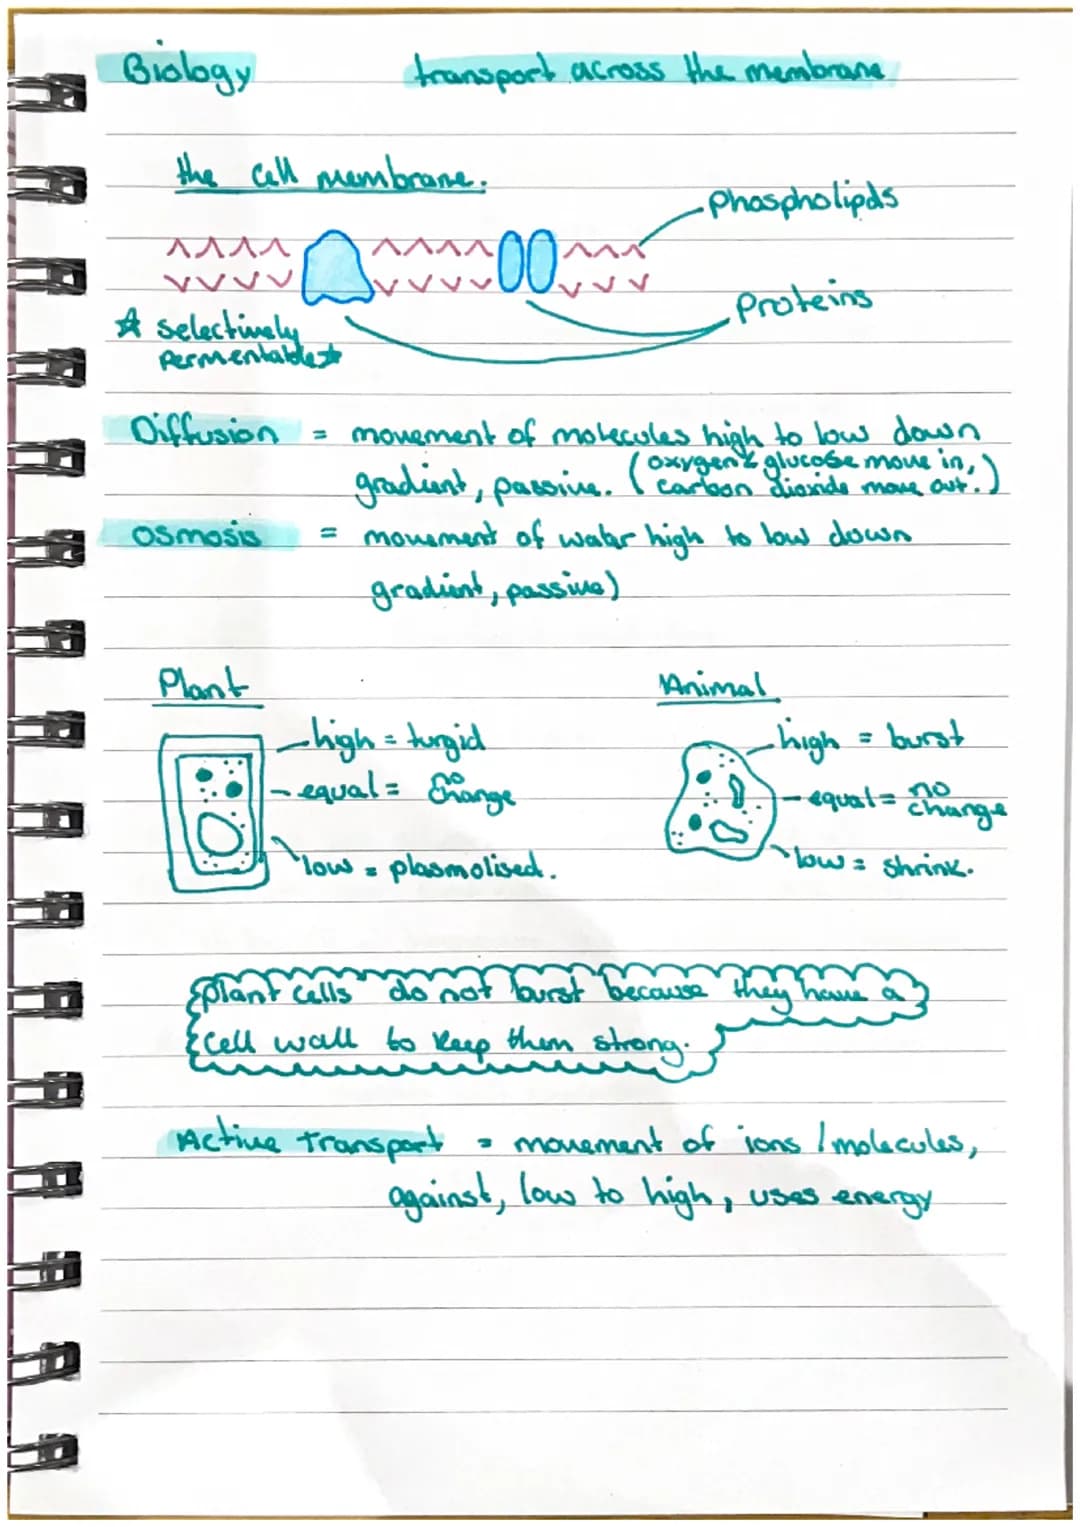 Biology transport across the membrane
the cell membrane.
phospholipds
proteins
☆ selectively
permentable☆
Diffusion = movement of molecules high to low down
gradient, passive. (oxygen & glucose move in,
carbon dioxide move out.)
osmosis = movement of water high to low down
gradient, passive)
Plant Animal
high = turgid
equal = no
change
low = plasmolised.
high = burst
equal = no
change
low = shrink.
plant cells do not burst because they have a
cell wall to keep them strong.
Active transport = movement of ions / molecules,
against, low to high, uses energy